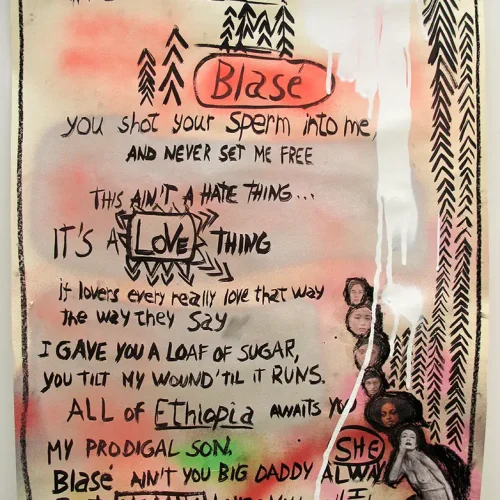 Blasé
you shot your sperm into me,
AND NEVER SET ME FREE
THIS AIN'T A HATE THING...
IT'S A LOVE THING
if lovers every really love that way
the way they say
I GAVE YOU A LOAF OF SUGAR,
YOU TILT MY WOUND 'TIL IT RUNS.
ALL OF Ethiopia AWAITS
MY PRODIGAL SON.
SHE
Blasé AIN'T YOU BIG DADDY ALWAY
I